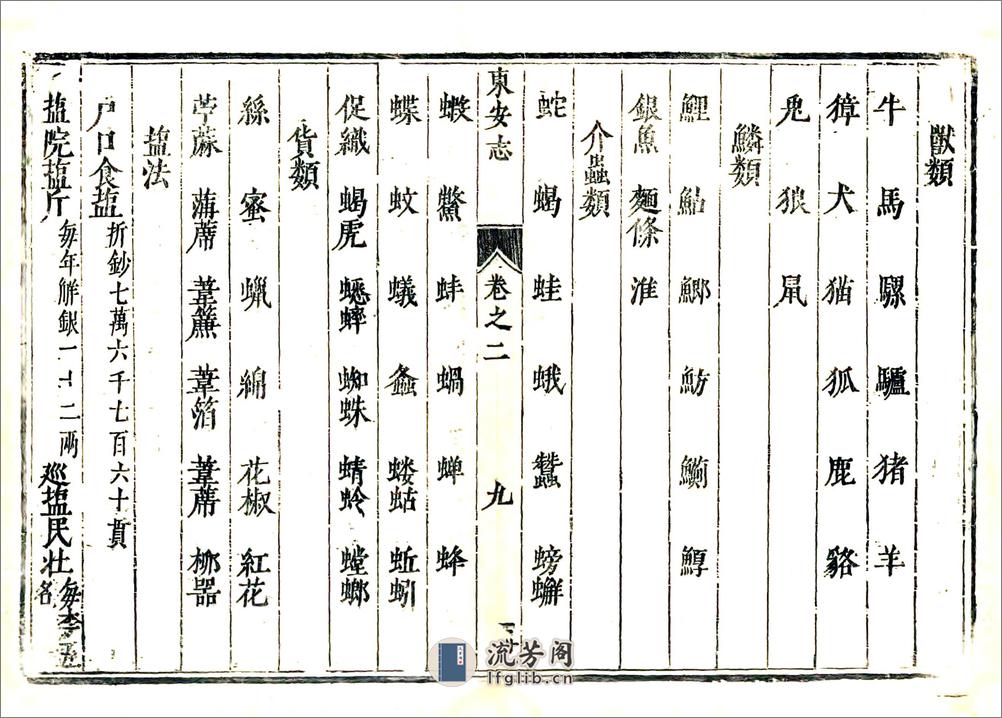 獸類
牛 馬 騾 驢 猪 羊
獐 犬 猫 狐 鹿 貉
兎 狼 鼠
鱗類
鯉 鮎 鯽 魴
銀魚 麵條 淮
介蟲類
蛇 蝎 蛙 蛾 蠶 螃蠏
東安志 卷之二 九
蝦 鱉 蚌 蝸 蟬 蜂
蝶 蚊 蟻 螽 螻蛄 蚯蚓
促織 蝎虎 蟋蟀 蜘蛛 蜻蛉 螳螂
貨類
絲 蜜 蠟 綿 花椒 紅花
苧蔴 蒲蓆 葦簾 葦箔 葦蓆 柳器
盐法
户口食盐 折鈔七萬六千七百六十貫
盐院盐斤 每年解銀一十二兩 廵盐民壮 每季五名
流芳阁
lfglib.cn